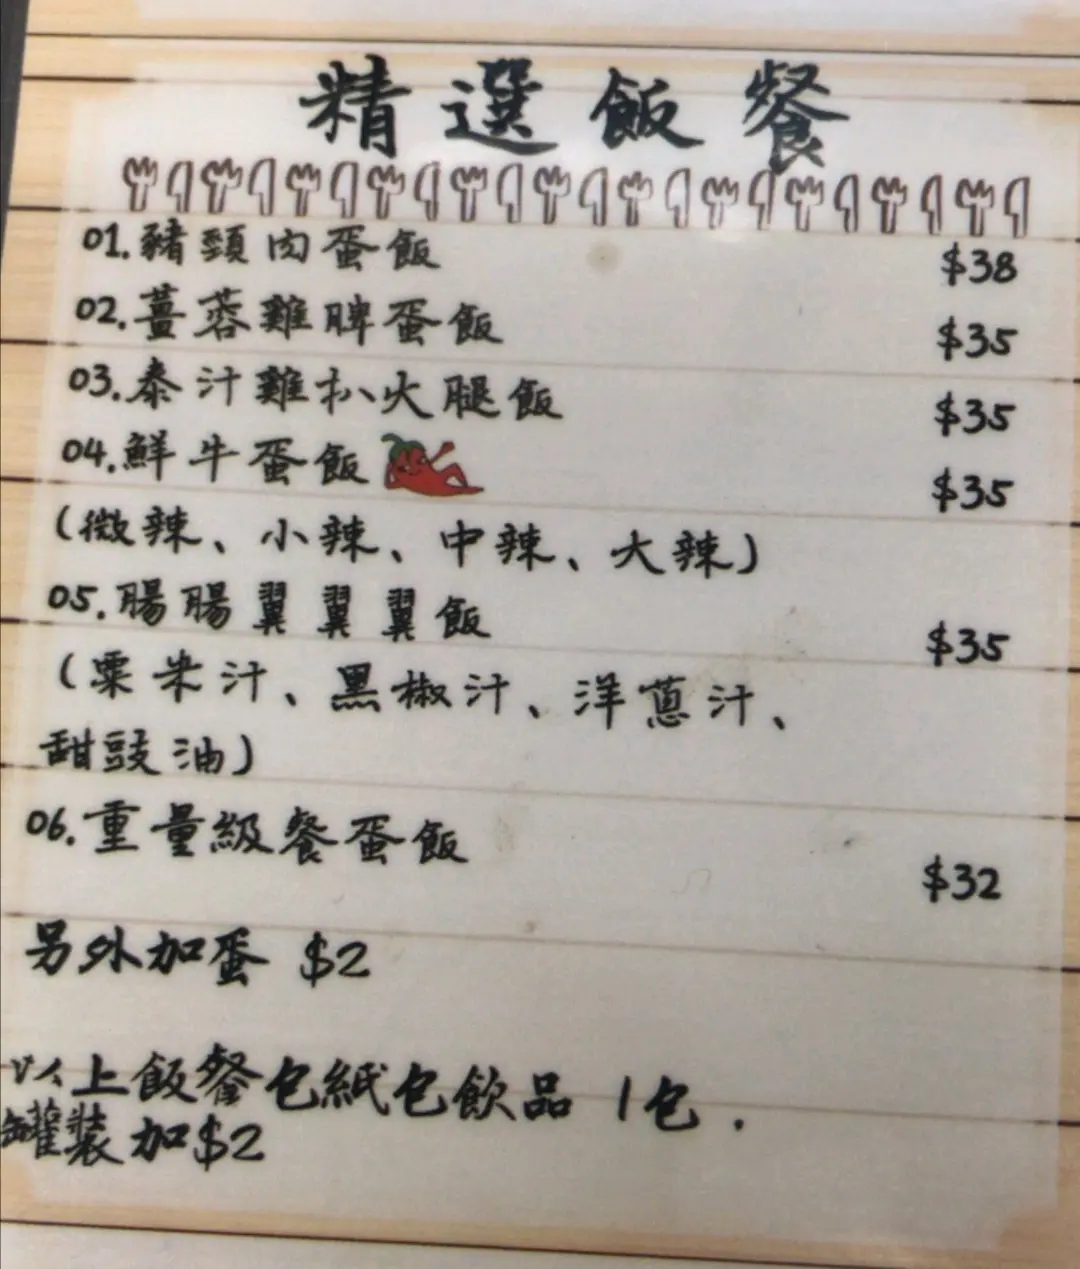 精選飯餐
01.豬頸肉蛋飯 $38
02.薑蓉雞脾蛋飯 $35
03.泰汁雞扒火腿飯 $35
04.鮮牛蛋飯 $35
(微辣、小辣、中辣、大辣)
05.腸腸翼翼翼飯 $35
(粟米汁、黑椒汁、洋蔥汁、
甜豉油)
06.重量級餐蛋飯 $32
另外加蛋 $2
以上飯餐包紙包飲品 1包.
罐裝加$2